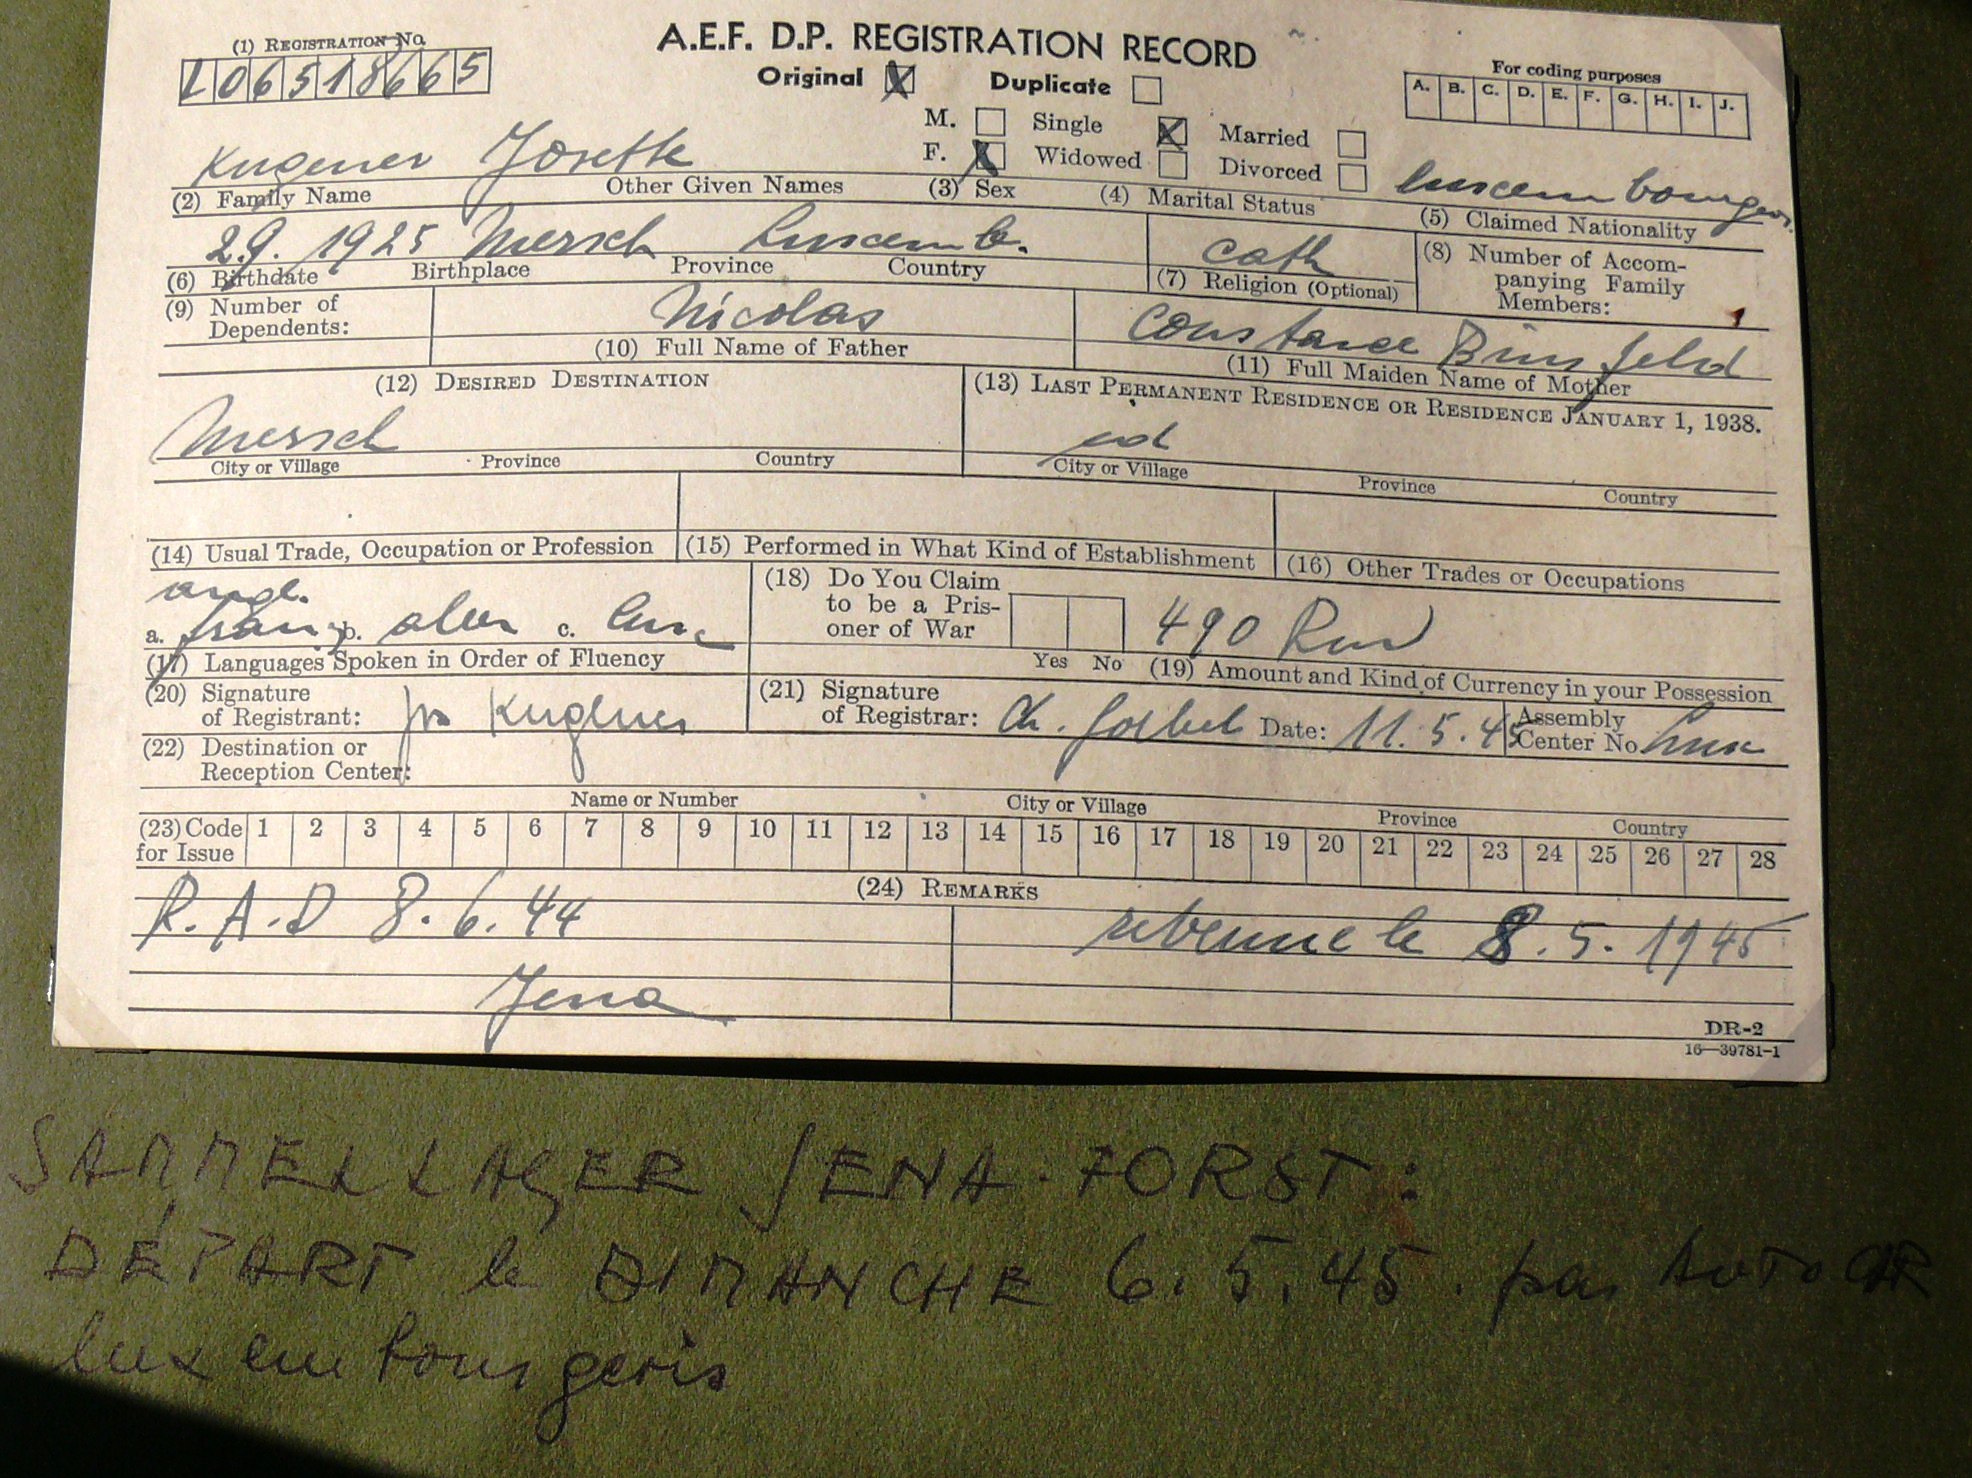 A.E.F. D.P. REGISTRATION RECORD
(1) REGISTRATION No.
L06518665
Original X Duplicate
For coding purposes
A. B. C. D. E. F. G. H. I. J.
M. Single X Married
F. X Widowed Divorced
Kugener Josette
luxembourgeois
(2) Family Name Other Given Names (3) Sex (4) Marital Status (5) Claimed Nationality
2.9. 1925 Mersch Luxemb. cath
(6) Birthdate Birthplace Province Country (7) Religion (Optional)
(8) Number of Accom-
panying Family
Members:
(9) Number of
Dependents:
Nicolas
(10) Full Name of Father
Constance Binsfeld
(11) Full Maiden Name of Mother
(12) DESIRED DESTINATION
(13) LAST PERMANENT RESIDENCE OR RESIDENCE JANUARY 1, 1938.
Mersch id
City or Village Province Country City or Village Province Country
(14) Usual Trade, Occupation or Profession (15) Performed in What Kind of Establishment (16) Other Trades or Occupations
angl.
a. franç b. allem c. lux
(17) Languages Spoken in Order of Fluency
(18) Do You Claim
to be a Pris-
oner of War
Yes No
490 Rm
(19) Amount and Kind of Currency in your Possession
(20) Signature
of Registrant: Jos Kugener
(21) Signature
of Registrar: Ch. Goebel Date: 11.5.45 Assembly
Center No. Lux
(22) Destination or
Reception Center:
Name or Number City or Village Province Country
(23) Code 1 2 3 4 5 6 7 8 9 10 11 12 13 14 15 16 17 18 19 20 21 22 23 24 25 26 27 28
for Issue
(24) REMARKS
R.A.D 8.6.44 revenue le 8.5.1945
Jena
DR-2
16—39781-1
SAMMELLAGER JENA-FORST:
DÉPART le DIMANCHE 6.5.45. par AUTOCAR
luxembourgeois